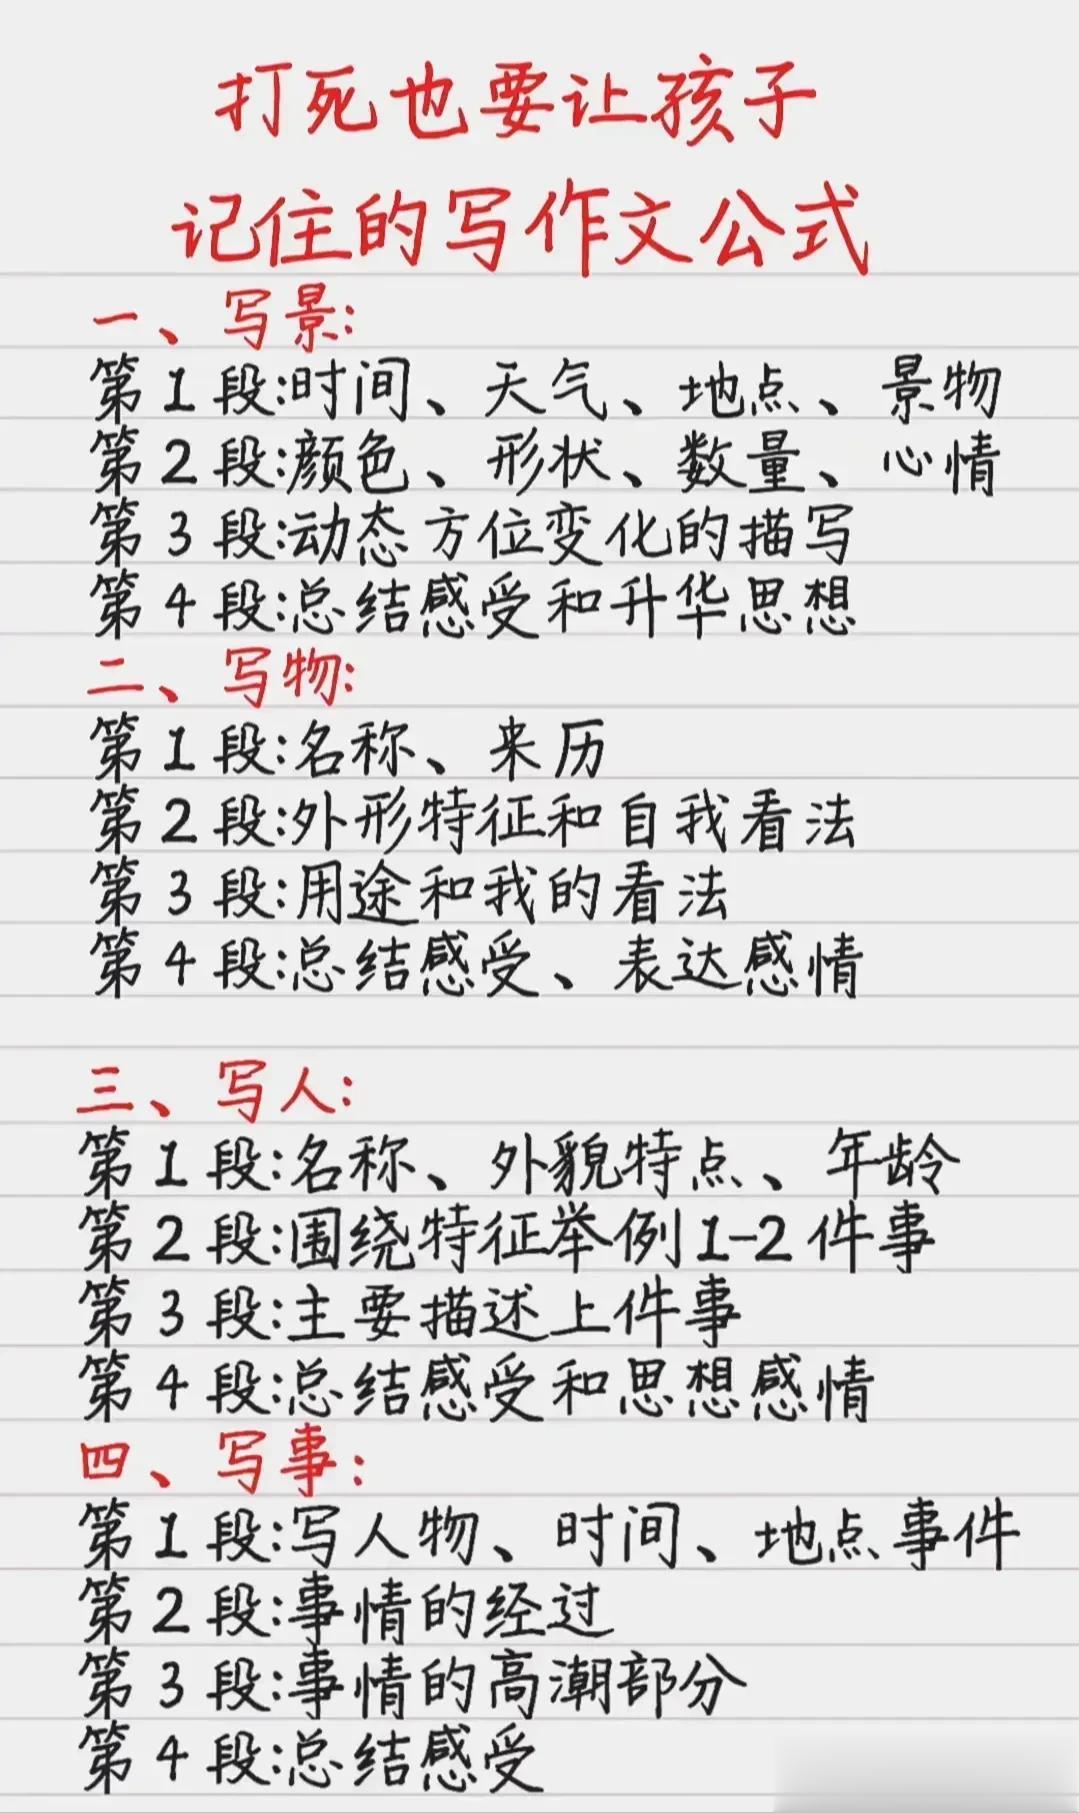 打死也要让孩子
记住的写作文公式
一、写景:
第1段:时间、天气、地点、景物
第2段:颜色、形状、数量、心情
第3段:动态方位变化的描写
第4段:总结感受和升华思想
二、写物:
第1段:名称、来历
第2段:外形特征和自我看法
第3段:用途和我的看法
第4段:总结感受、表达感情
三、写人:
第1段:名称、外貌特点、年龄
第2段:围绕特征举例1-2件事
第3段:主要描述上件事
第4段:总结感受和思想感情
四、写事:
第1段:写人物、时间、地点事件
第2段:事情的经过
第3段:事情的高潮部分
第4段:总结感受